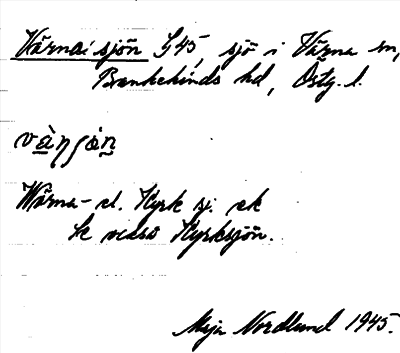 Värna sjön G45, sjö i Värna sn,
Bankekinds hd, Östg. l.
Wärna- el. Kyrk sj. ek
Kyrksjön.
Maja Nordlund 1945.